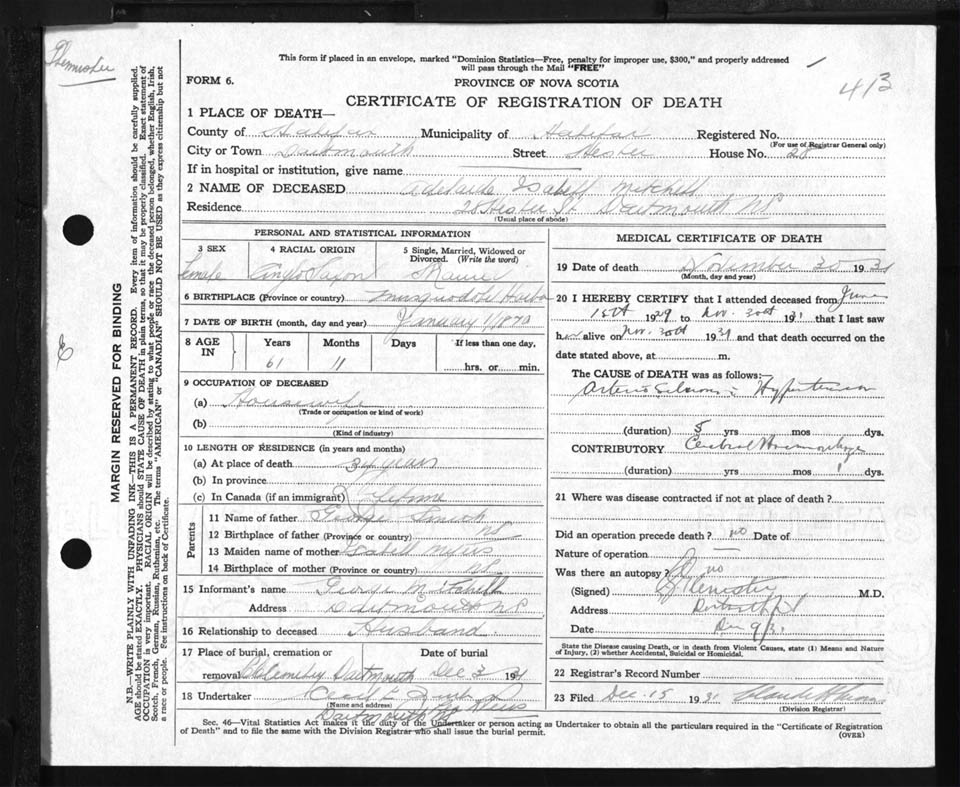 This form if placed in an envelope, marked "Dominion Statistics—Free, penalty for improper use, $300," and properly addressed
will pass through the Mail "FREE"
413
FORM 6.
PROVINCE OF NOVA SCOTIA
CERTIFICATE OF REGISTRATION OF DEATH
1 PLACE OF DEATH—
County of Halifax Municipality of Halifax Registered No.
(For use of Registrar General only)
City or Town Dartmouth Street Hester House No. 28
If in hospital or institution, give name
2 NAME OF DECEASED Adelaide Isabell Mitchell
Residence 28 Hester St Dartmouth NS
(Usual place of abode)
PERSONAL AND STATISTICAL INFORMATION
3 SEX 4 RACIAL ORIGIN 5 Single, Married, Widowed or
Divorced. (Write the word)
Female Anglo Saxon
6 BIRTHPLACE (Province or country) Musquodoboit Harbor
7 DATE OF BIRTH (month, day and year) January 1/1870
8 AGE IN Years Months Days If less than one day,
61 11 hrs. or min.
9 OCCUPATION OF DECEASED
(a) Housewife
(Trade or occupation or kind of work)
(b)
(Kind of industry)
10 LENGTH OF RESIDENCE (in years and months)
(a) At place of death 34 years
(b) In province
(c) In Canada (if an immigrant) Lifetime
Parents
11 Name of father George
12 Birthplace of father (Province or country) NS
13 Maiden name of mother Isabell Myers
14 Birthplace of mother (Province or country) NS
15 Informant's name George Mitchell
Address Dartmouth NS
16 Relationship to deceased Husband
17 Place of burial, cremation or Date of burial
removal Dartmouth Dec 3 1931
18 Undertaker Cecil E
(Name and address)
Dartmouth
MEDICAL CERTIFICATE OF DEATH
19 Date of death November 30 1931
(Month, day and year)
20 I HEREBY CERTIFY that I attended deceased from June
15th 1929 to Nov. 30th 1931 that I last saw
her alive on Nov. 30th 1931 and that death occurred on the
date stated above, at m.
The CAUSE of DEATH was as follows:—
Hypertension
(duration) 5 yrs mos dys.
CONTRIBUTORY Cerebral Hemorrhage
(duration) yrs mos 1 dys.
21 Where was disease contracted if not at place of death?
Did an operation precede death? no Date of
Nature of operation
Was there an autopsy? no
(Signed) M.D.
Address
Date Dec 9/31
State the Disease causing Death, or in death from Violent Causes, state (1) Means and Nature
of Injury, (2) whether Accidental, Suicidal or Homicidal.
22 Registrar's Record Number
23 Filed Dec. 15 1931
(Division Registrar)
Sec. 46—Vital Statistics Act makes it the duty of the Undertaker or person acting as Undertaker to obtain all the particulars required in the "Certificate of Registration
of Death" and to file the same with the Division Registrar who shall issue the burial permit.
(OVER)
MARGIN RESERVED FOR BINDING
N.B.—WRITE PLAINLY WITH UNFADING INK—THIS IS A PERMANENT RECORD. Every item of information should be carefully supplied.
AGE should be stated EXACTLY. PHYSICIANS should STATE CAUSE OF DEATH in plain terms, so that it may be properly classified. Exact statement of
OCCUPATION is very important. RACIAL ORIGIN will be described by stating to what people or race the deceased person belonged, whether English, Irish,
Scotch, French, German, Russian, Ruthenian, etc. The terms "AMERICAN" or "CANADIAN" SHOULD NOT BE USED as they express citizenship but not
a race or people. Fee instructions on back of Certificate.